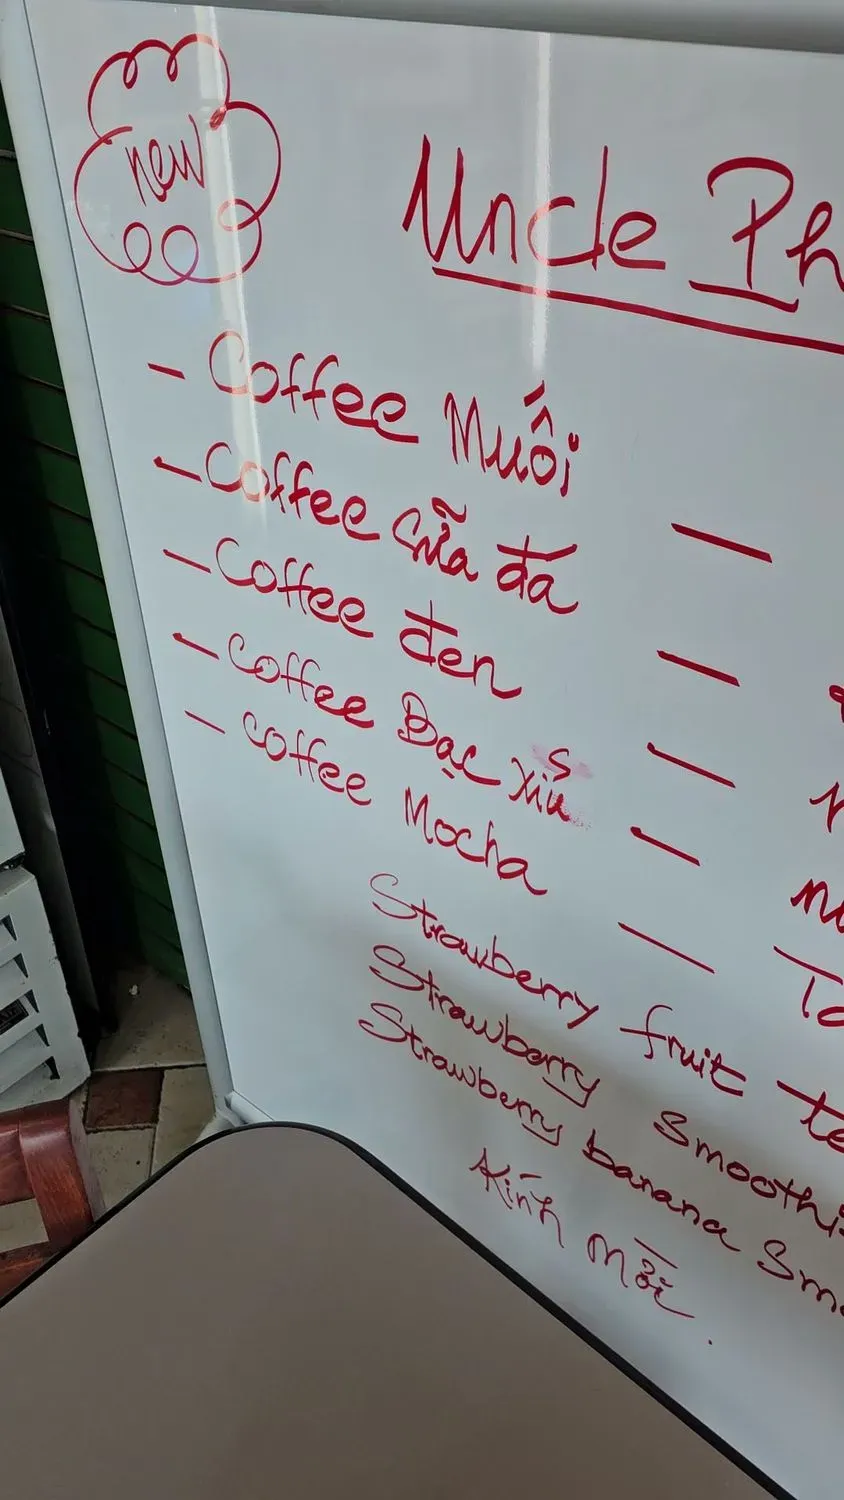 new
Uncle Ph
- Coffee Muối —
- Coffee sữa đá —
- Coffee đen —
- Coffee Bạc xỉu —
- Coffee Mocha —
Strawberry fruit te
Strawberry smoothi
Strawberry banana smo
Kính Mời.